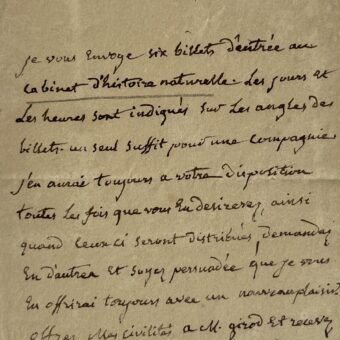 je vous Envoye six billets d'entrée au
Cabinet d'histoire naturelle. Les jours Et
Les heures sont indiqués sur Les angles des
billets. un seul suffit pour une Compagnie
j'en aurai toujours a votre disposition
toutes Les fois que vous En desirerez, ainsi
quand Ceux ci seront distribués demandez
En d'autres Et soyez persuadée que je vous
En offrirai toujours avec un nouveau plaisir.
offrez Mes Civilités a M. girod Et recevez